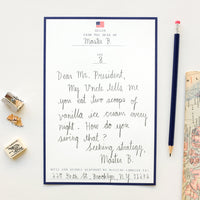 FROM THE DESK OF
Master B.
Dear Mr. President,
My Uncle tells me
you eat two scoops of
vanilla ice cream every
night. How do you
swing that?
Seeking strategy,
Master B.
Brooklyn, N.Y. 11226